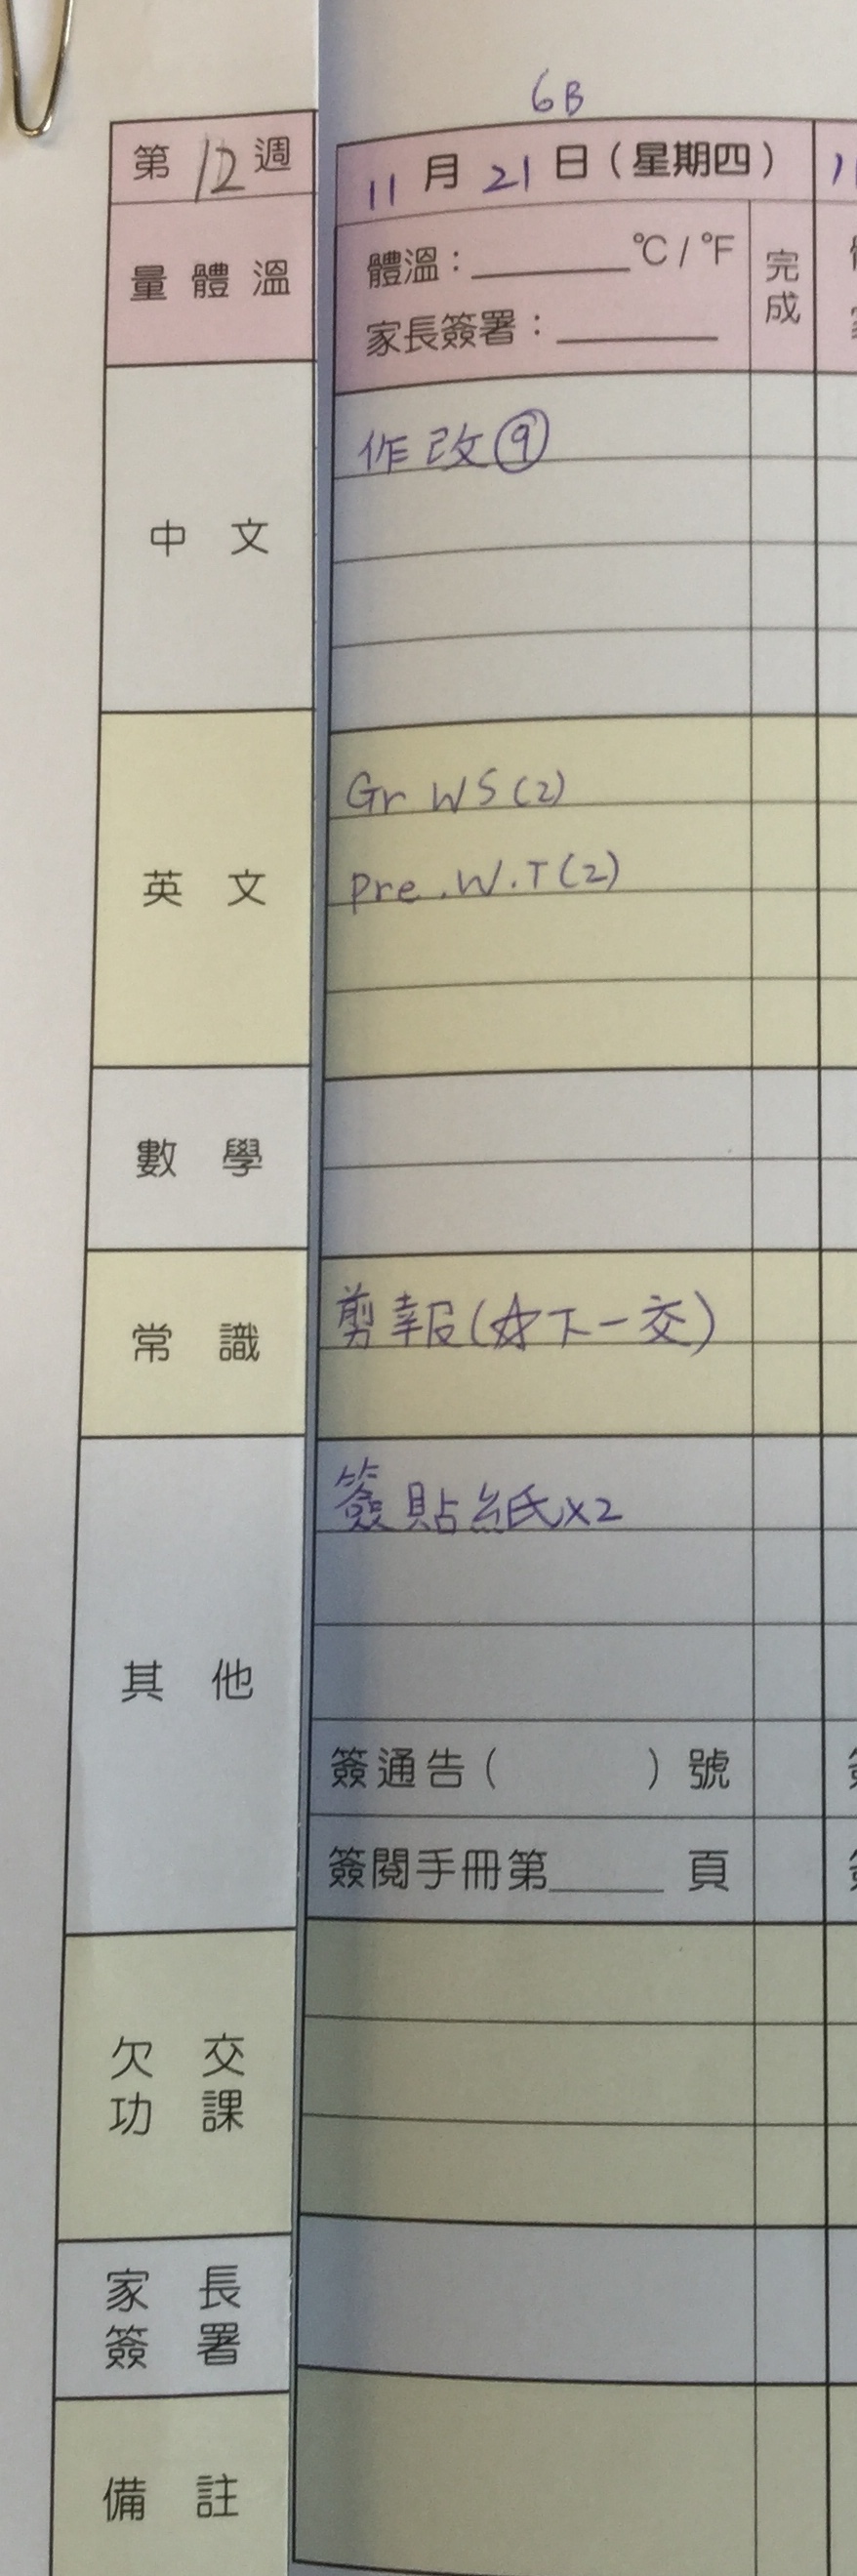 6B
第12週
11月21日(星期四)
量體溫
體溫：______°C/°F
完成
家長簽署：______
中文
作改⑨
英文
Gr WS(2)
Pre.W.T(2)
數學
常識
剪報(☆下一交)
其他
簽貼紙x2
簽通告（　　　）號
簽閱手冊第_____頁
欠交
功課
家長
簽署
備註